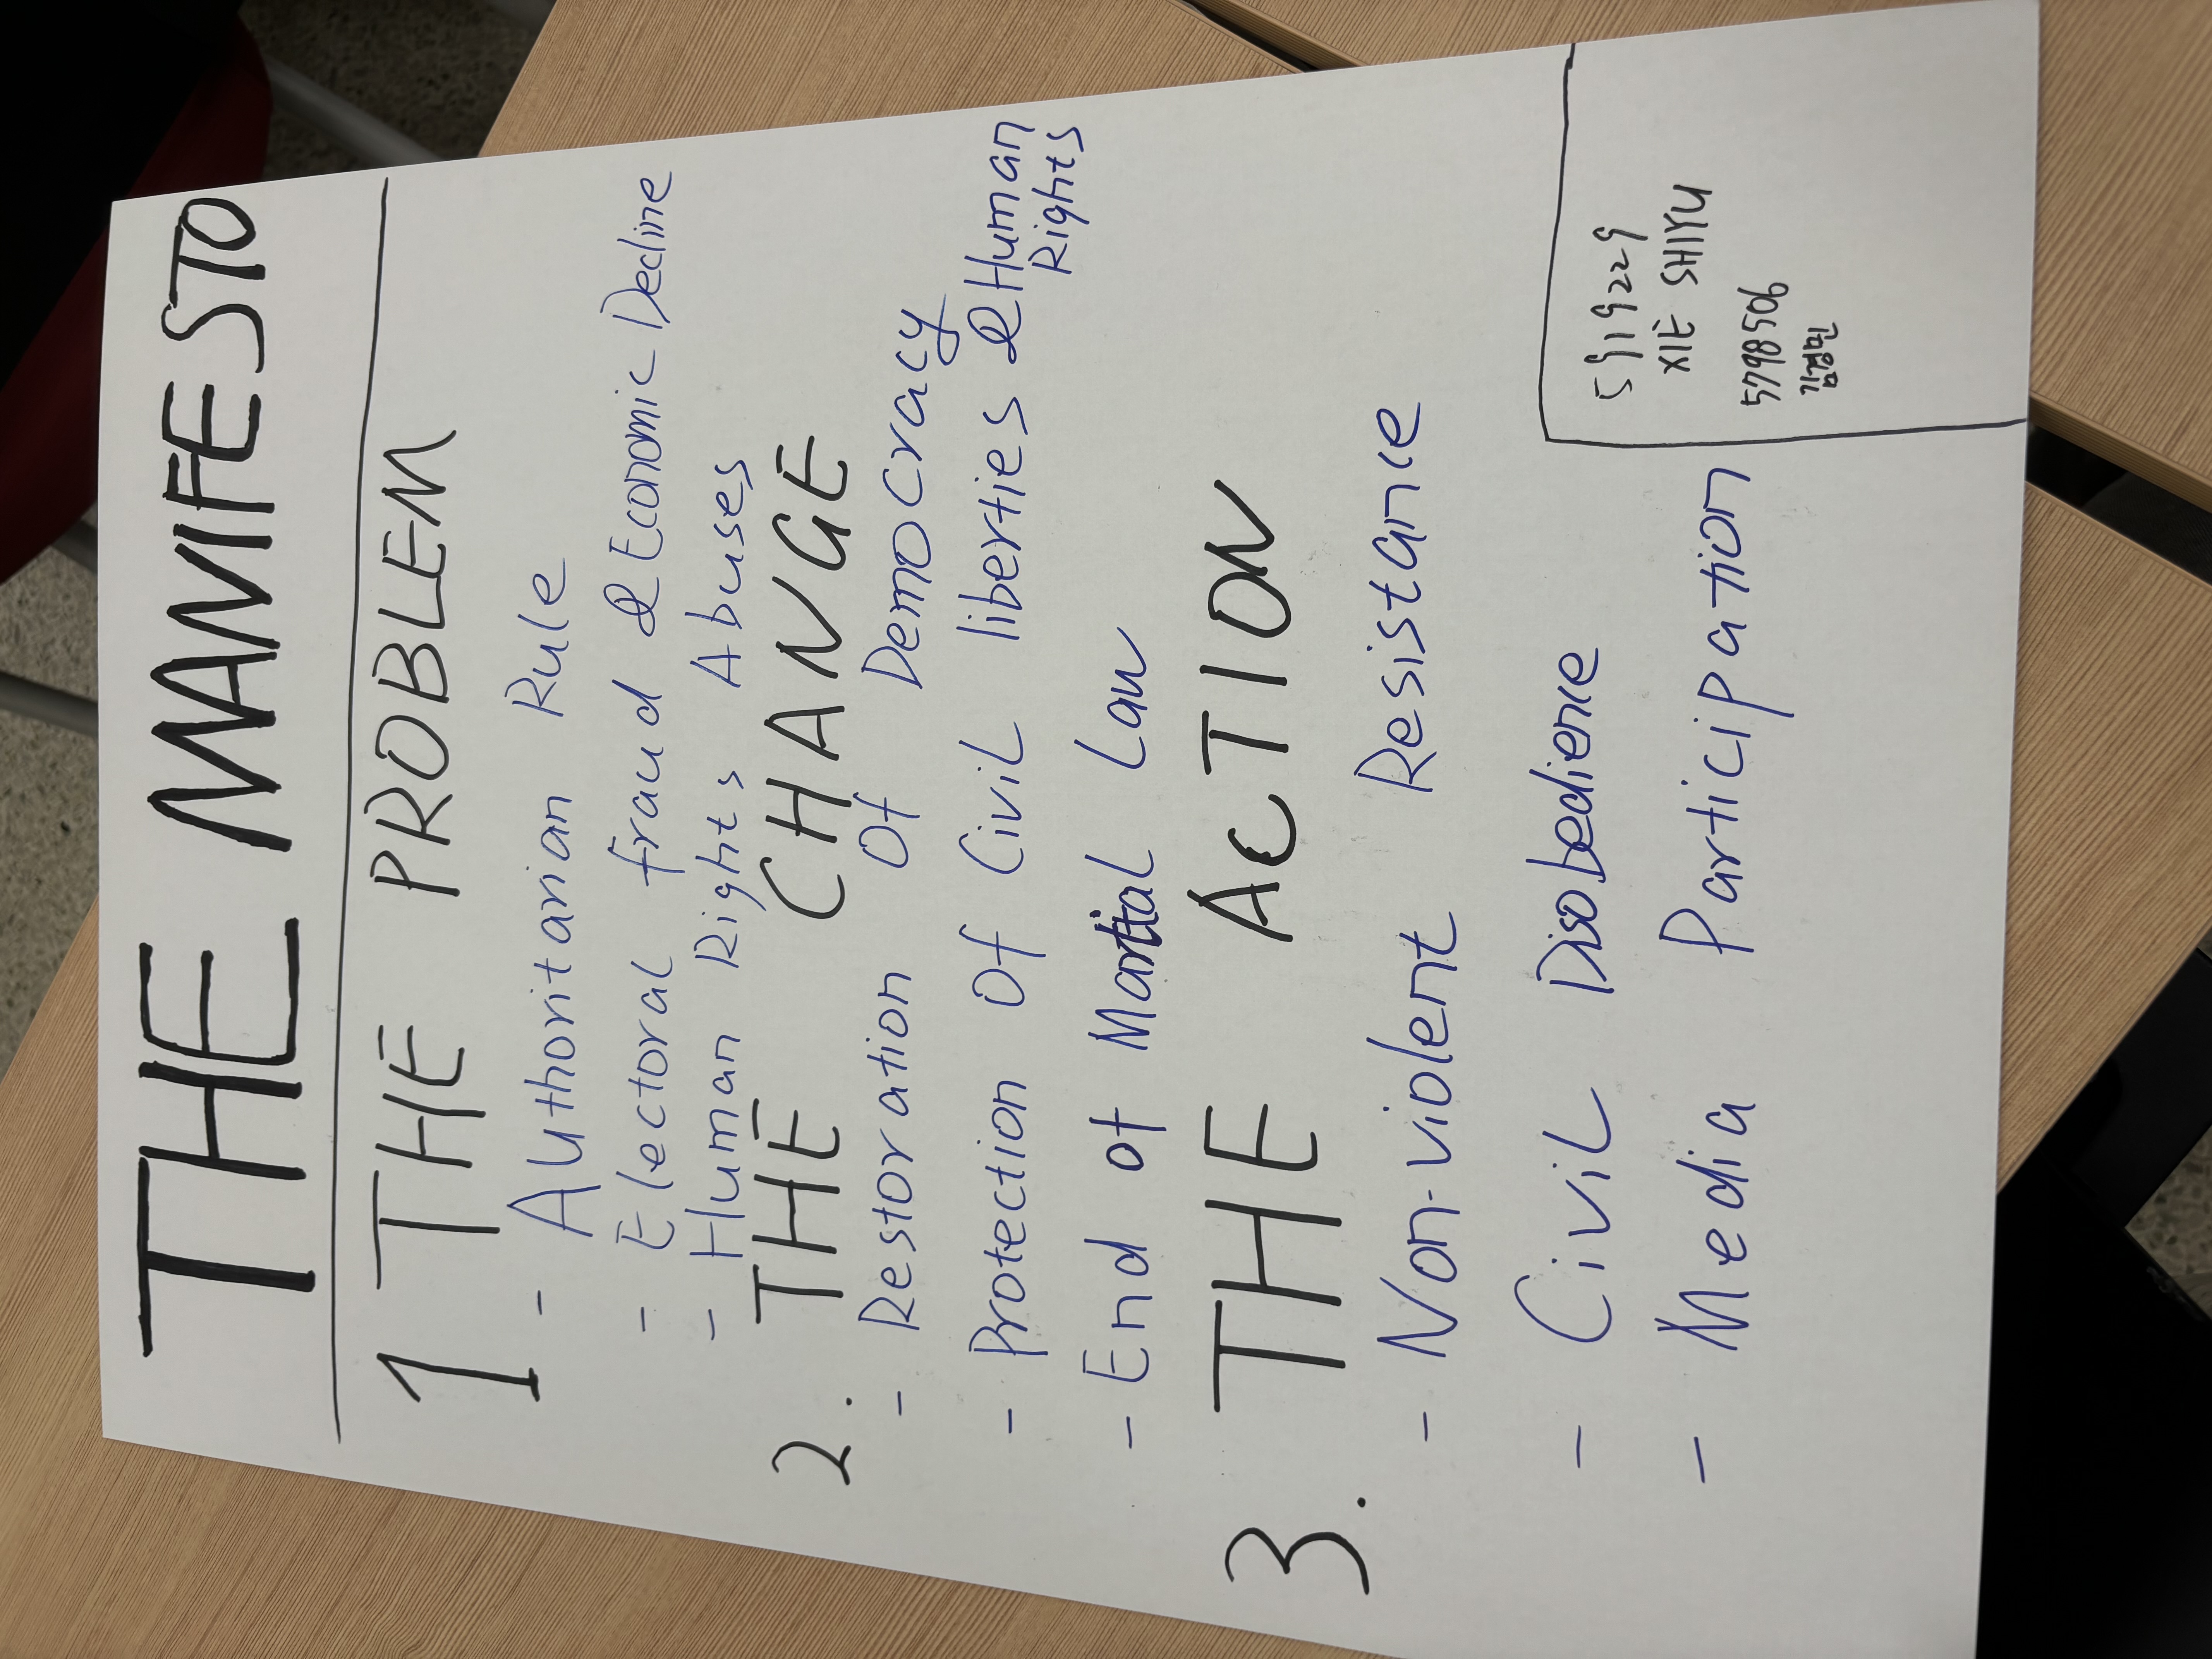 THE MANIFESTO
1 THE PROBLEM
- Authoritarian Rule
- Electoral fraud & Economic Decline
- Human Rights Abuses
2. THE CHANGE
- Restoration Of Democracy
- Protection Of Civil liberties & Human
Rights
- End of Martial Law
3. THE ACTION
- Non-violent Resistance
- Civil Disobedience
- Media Participation
5919229
XIE SHIYU
5798506